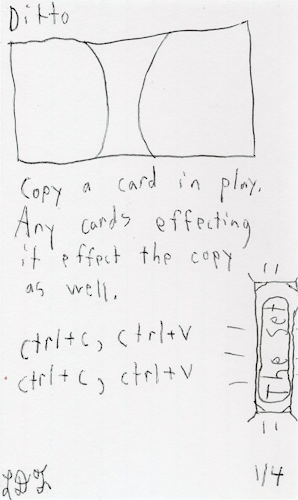 Ditto
Copy a card in play.
Any cards effecting
it effect the copy
as well.
ctrl+c, ctrl+v
ctrl+c, ctrl+v
The Set
1/4